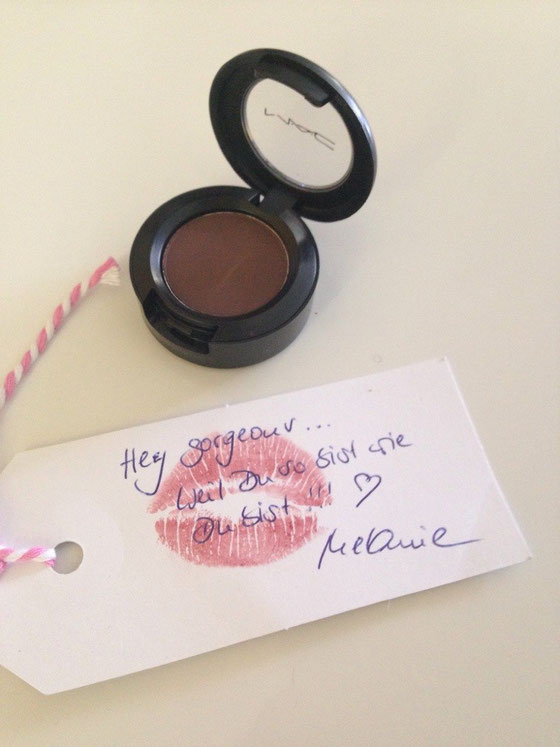 MAC
Hey gorgeous...
Weil Du so bist wie
Du bist!!! ♡
Melanie